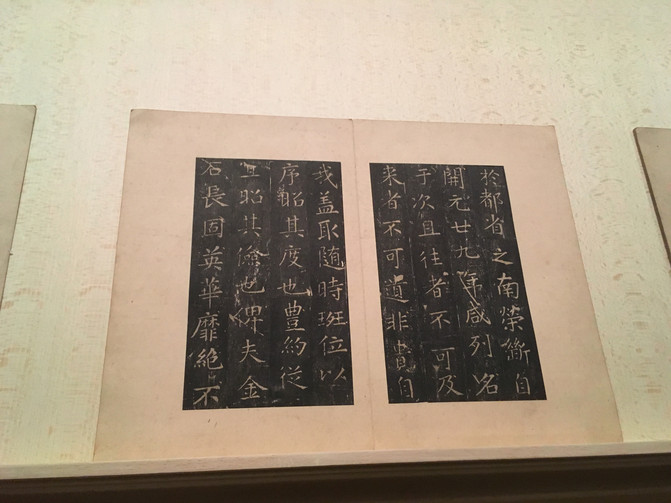 於都省之南榮斷自
開元廿九年咸列名
于次且往者不可及
来者不可遺非貴自
我盖取随時班位以
序昭其度也豊約從
宜昭其儉也俾夫金
石長固英華靡絕不